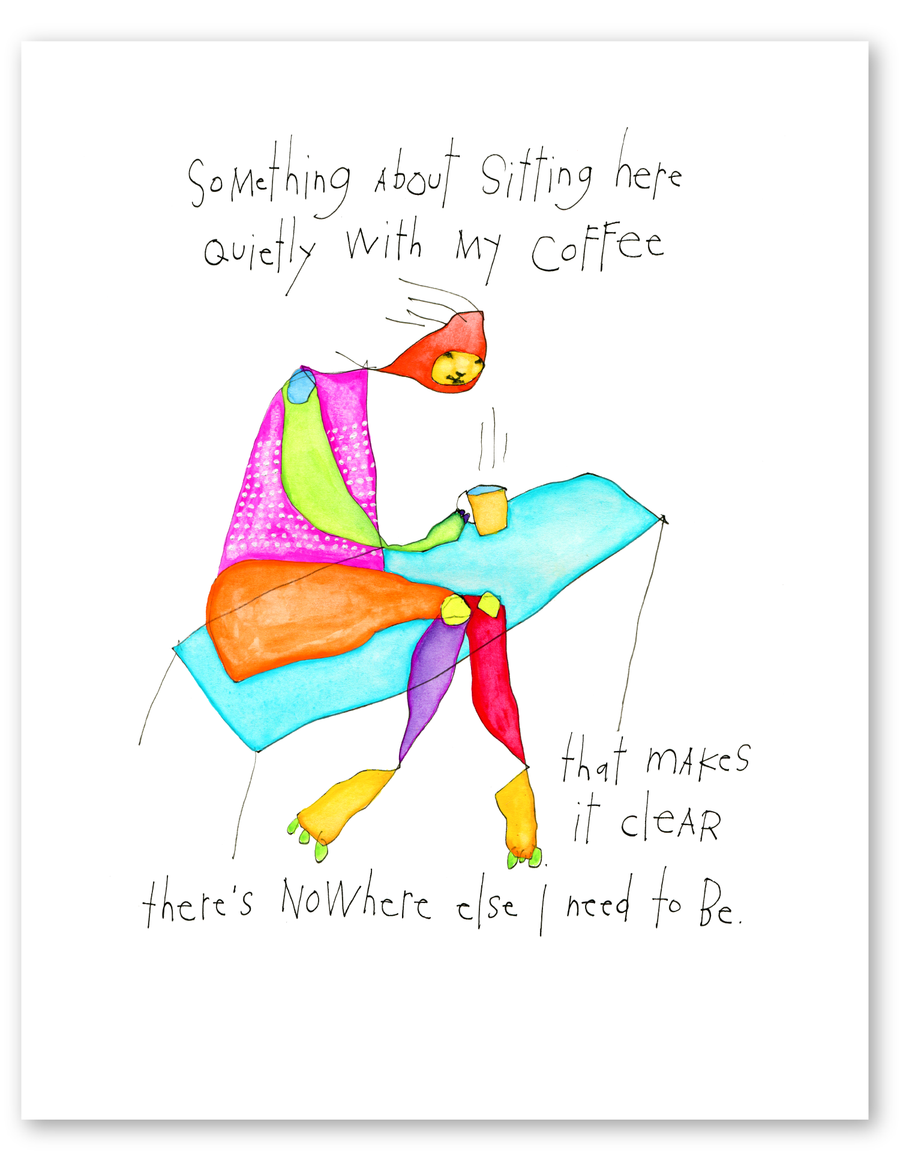 Something About Sitting here
Quietly With My Coffee
that makes
it cleAR
there's NoWhere else I need to Be.